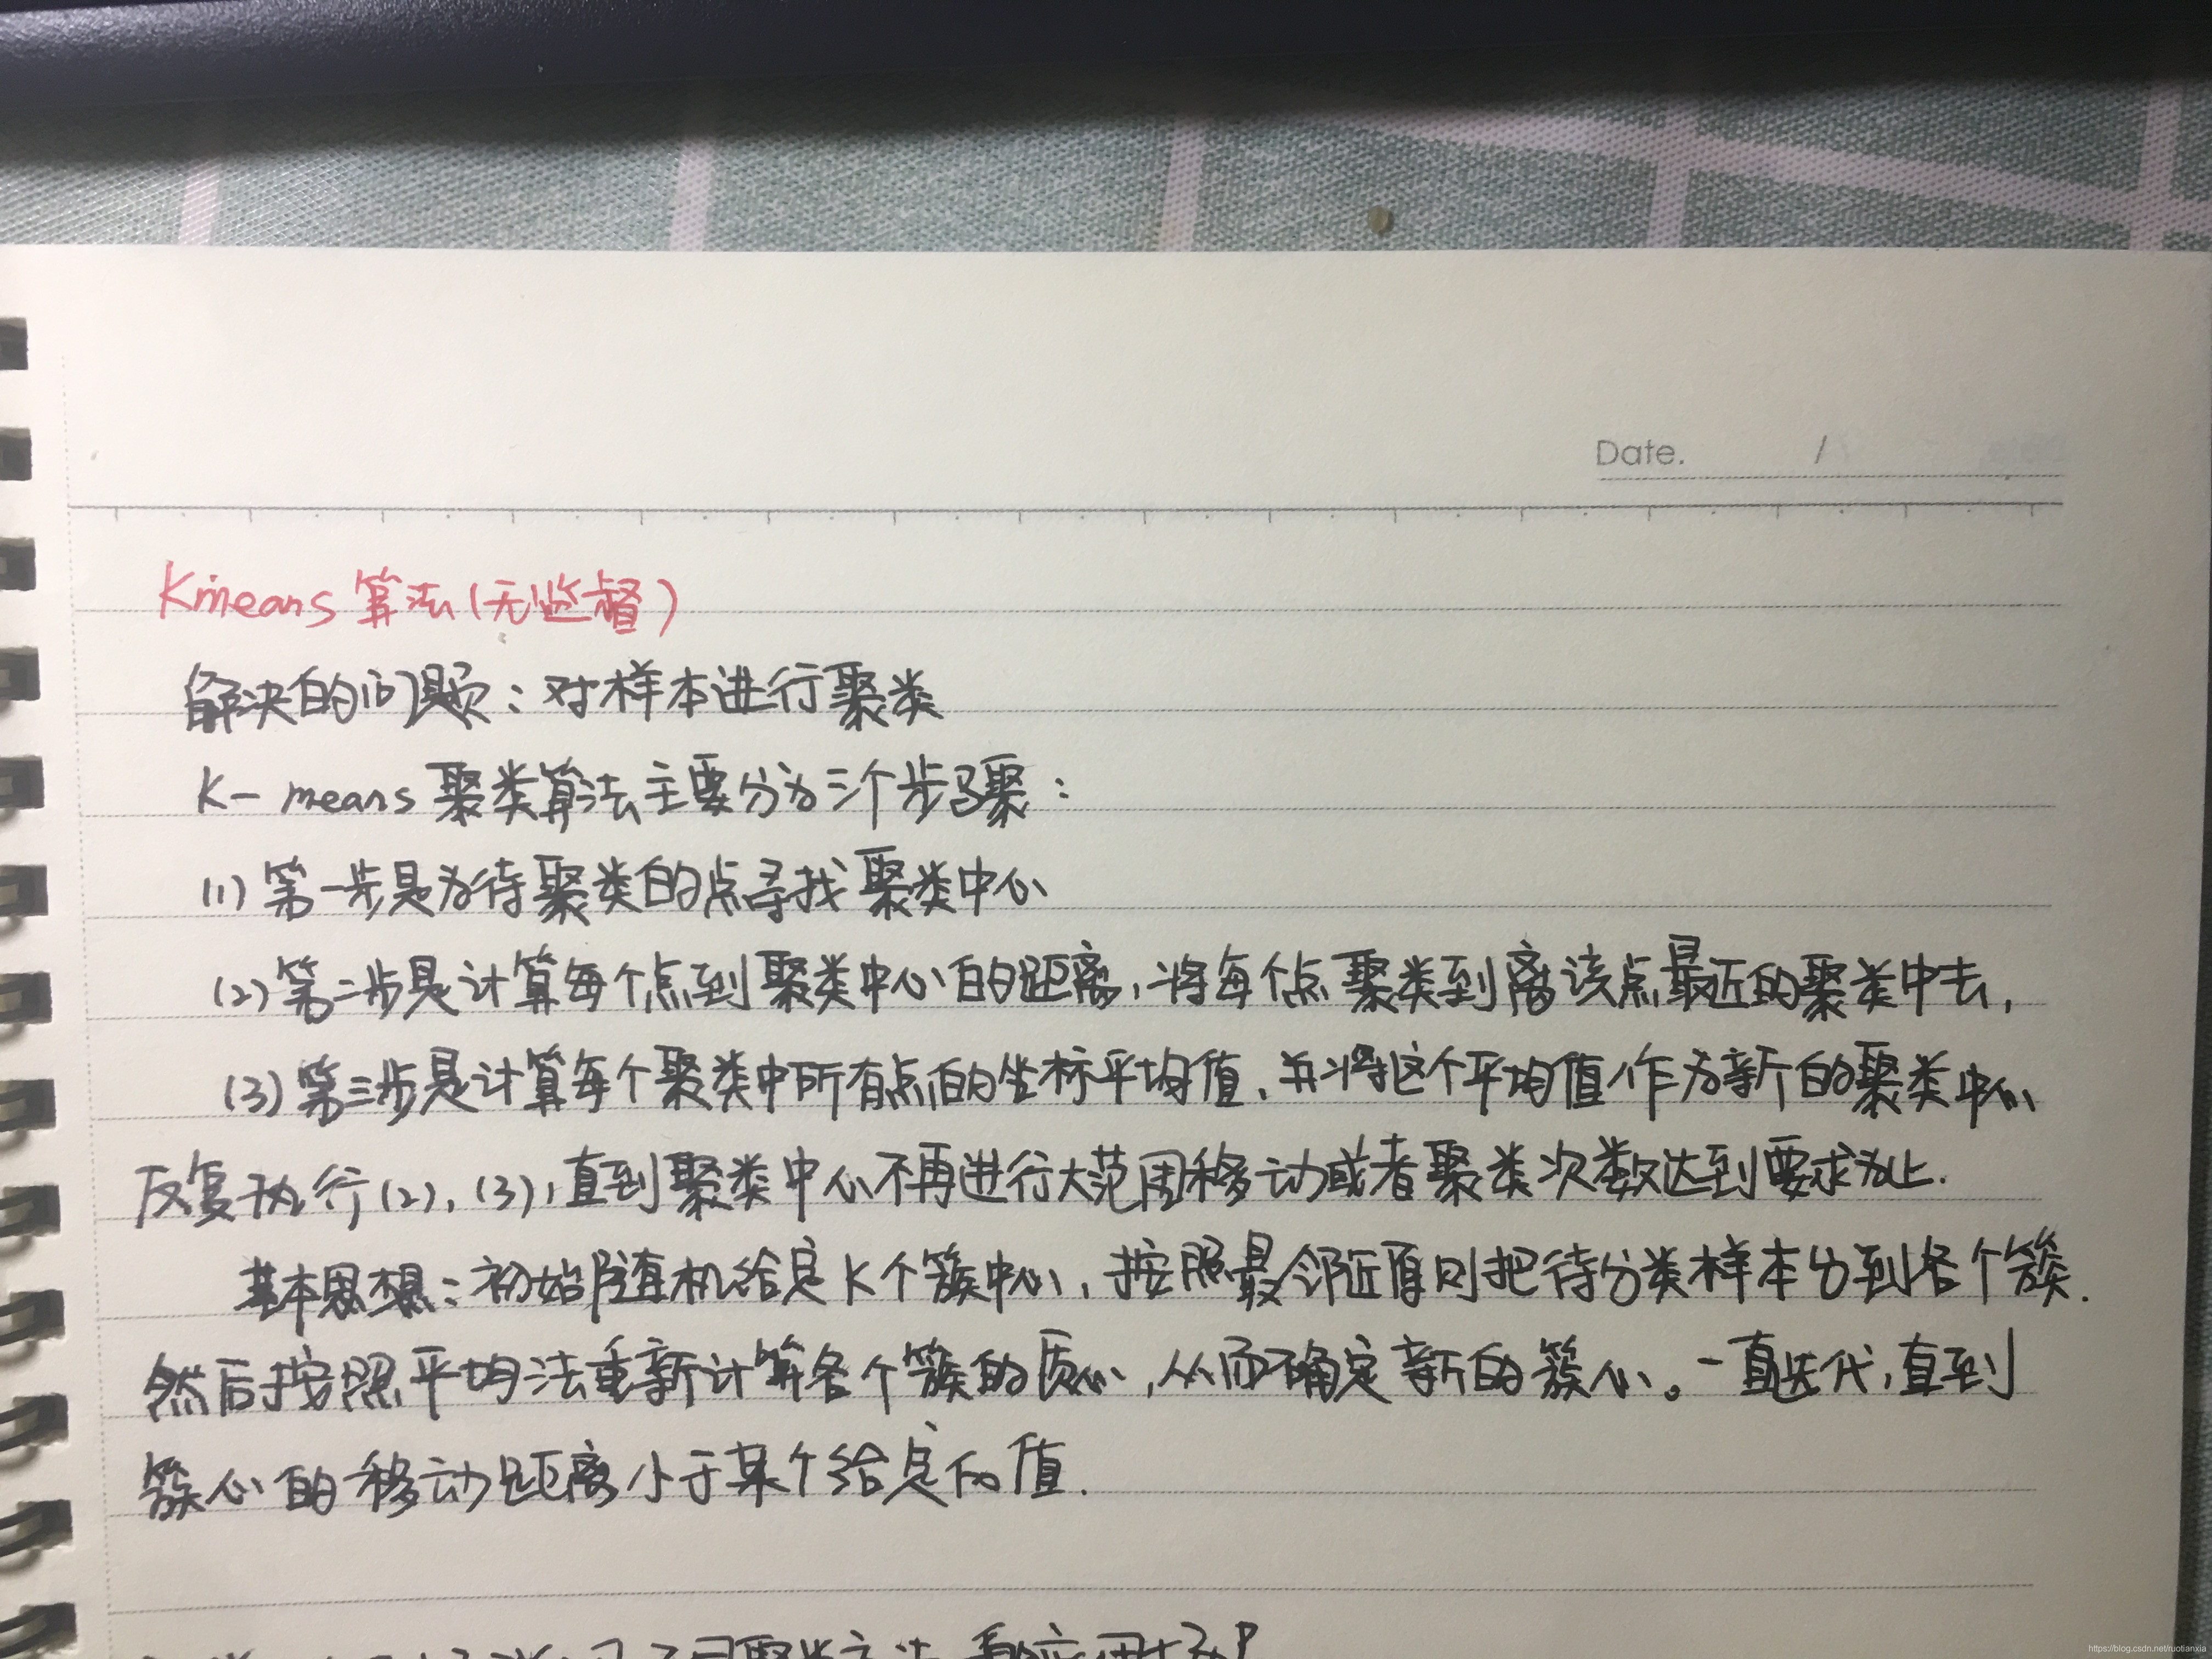 Date. /
Kmeans 算法(无监督)
解决的问题：对样本进行聚类
K- means 聚类算法主要分为三个步骤：
(1) 第一步是为待聚类的点寻找聚类中心
(2) 第二步是计算每个点到聚类中心的距离，将每个点聚类到离该点最近的聚类中去，
(3) 第三步是计算每个聚类中所有点的坐标平均值，并将这个平均值作为新的聚类中心
反复执行(2)，(3)，直到聚类中心不再进行大范围移动或者聚类次数达到要求为止.
基本思想：初始随机给定K个簇中心，按照最邻近原则把待分类样本分到各个簇.
然后按照平均法重新计算各个簇的质心，从而确定新的簇心。一直迭代，直到
簇心的移动距离小于某个给定的值.
https://blog.csdn.net/ruotianxia